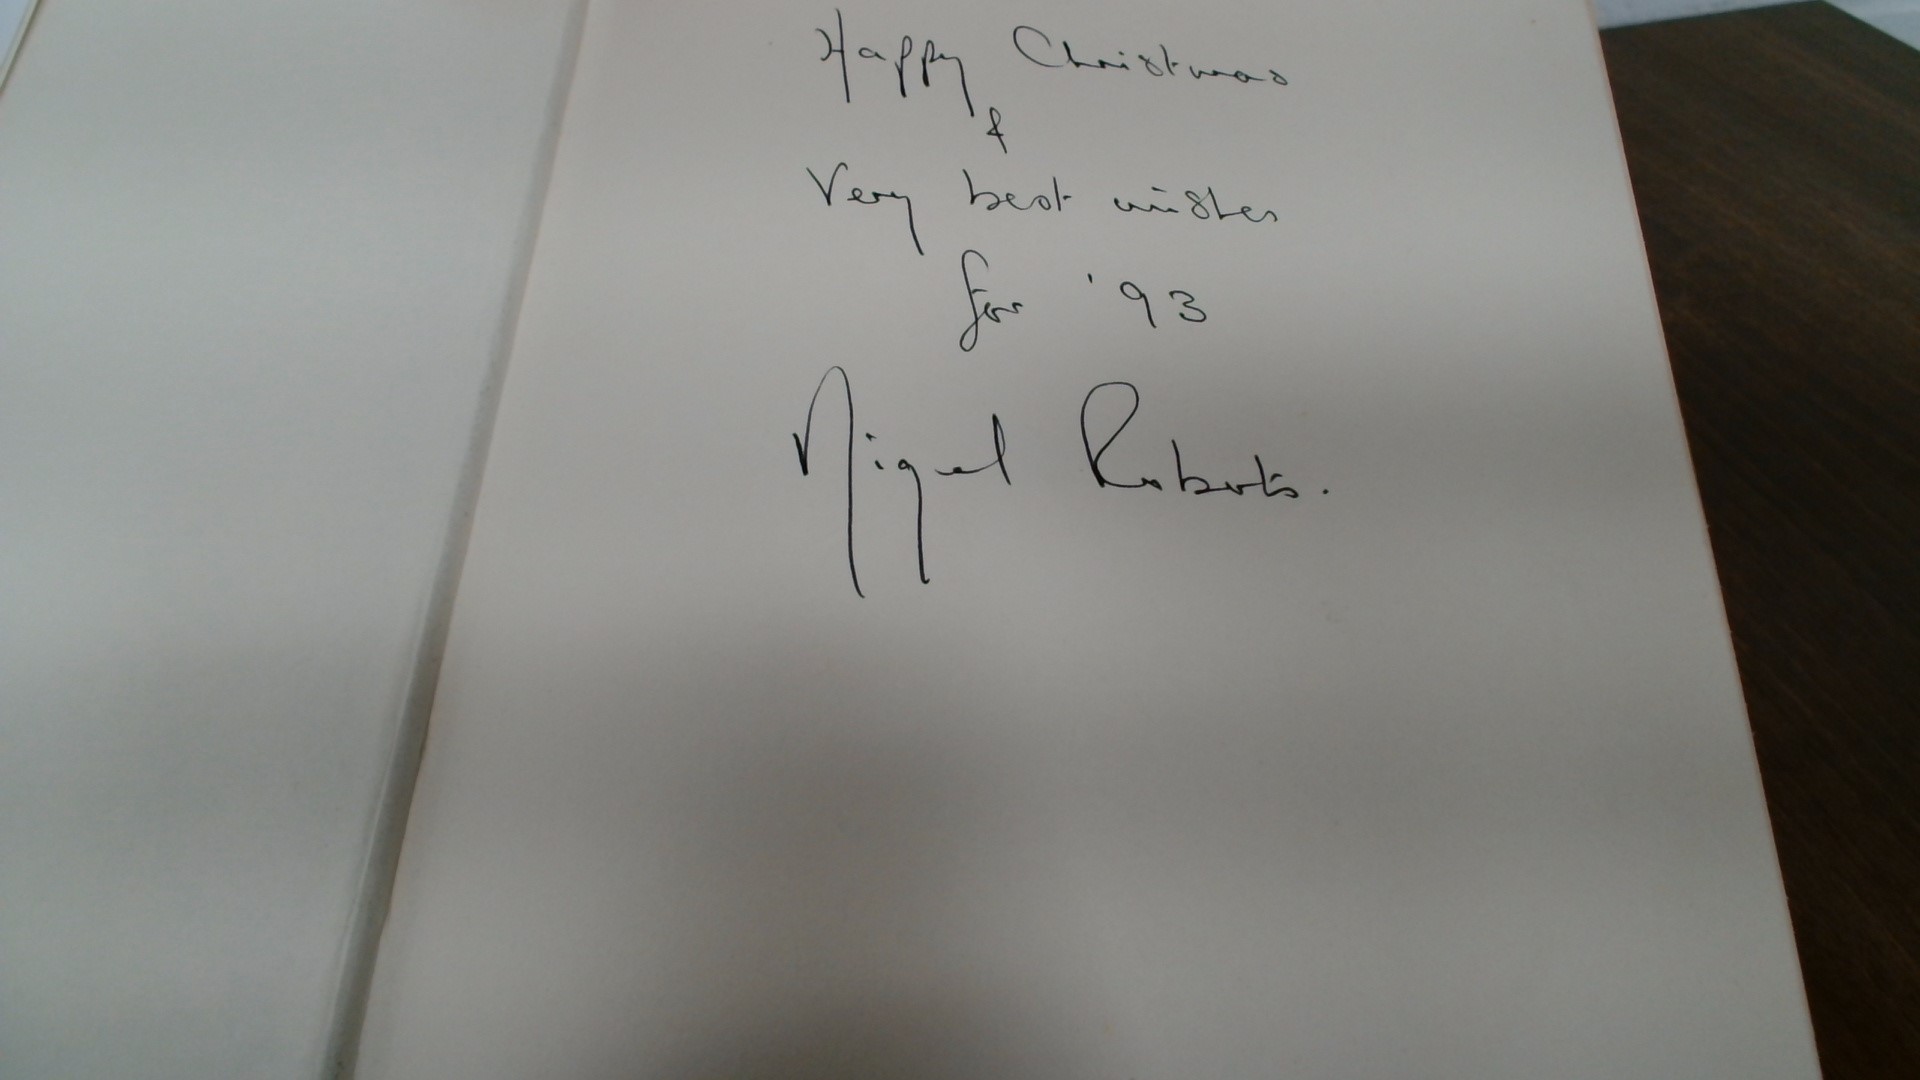 Happy Christmas
&
Very best wishes
for '93
Nigel Roberts.